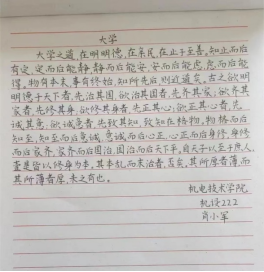 大学
大学之道,在明明德,在亲民,在止于至善。知止而后
有定,定而后能静,静而后能安,安而后能虑,虑而后能
得。物有本末,事有终始,知所先后,则近道矣。古之欲明
明德于天下者,先治其国,欲治其国者,先齐其家;欲齐其
家者,先修其身,欲修其身者,先正其心;欲正其心者,先
诚其意;欲诚其意者,先致其知,致知在格物,物格而后
知至,知至而后意诚,意诚而后心正,心正而后身修,身修
而后家齐,家齐而后国治,国治而后天下平。自天子以至于庶人,
壹是皆以修身为本,其本乱而末治者,否矣,其所厚者薄,而
其所薄者厚,未之有也。
机电技术学院
机设222
肖小军